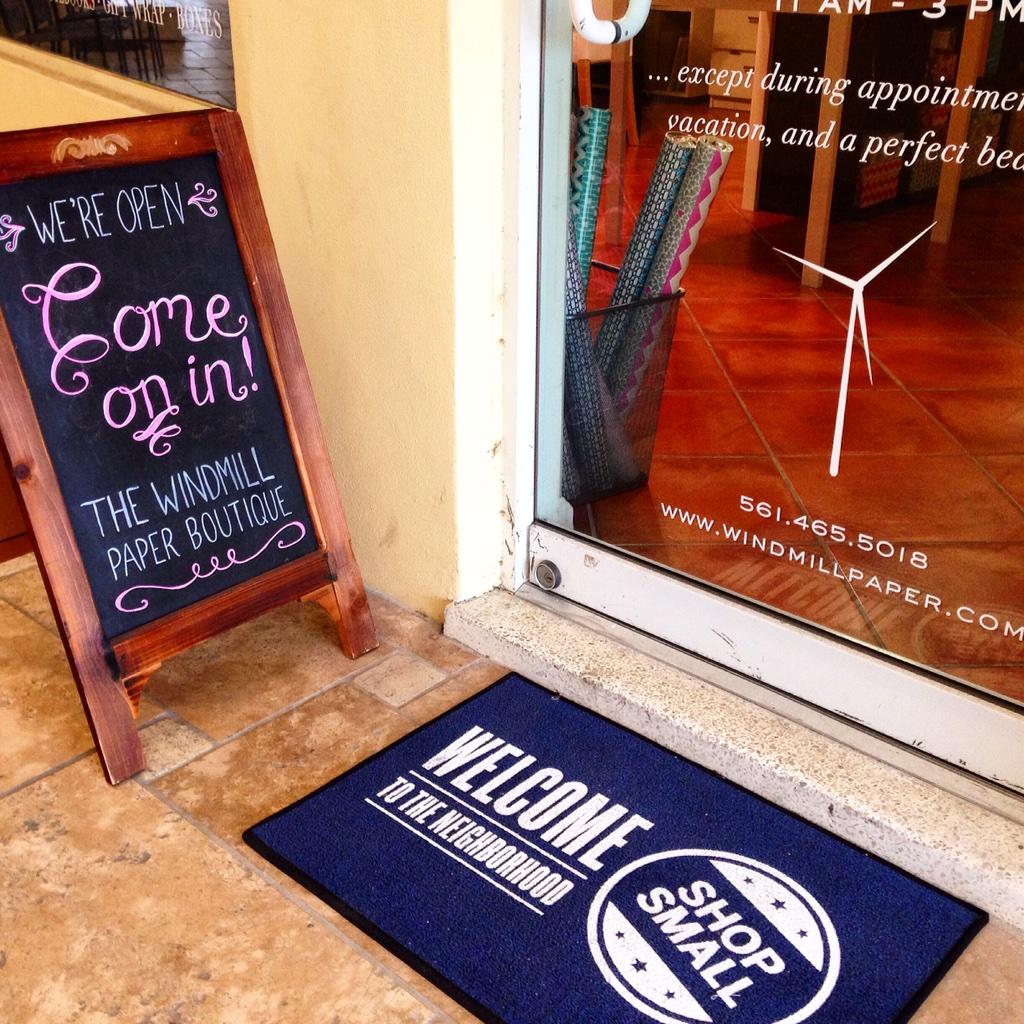 GIFT WRAP · BOXES
WE'RE OPEN
Come
on in!
THE WINDMILL
PAPER BOUTIQUE
11 AM - 3 PM
... except during
vacation, and a perfect
561.465.5018
WWW.WINDMILLPAPER.COM
WELCOME
TO THE NEIGHBORHOOD
SHOP
SMALL